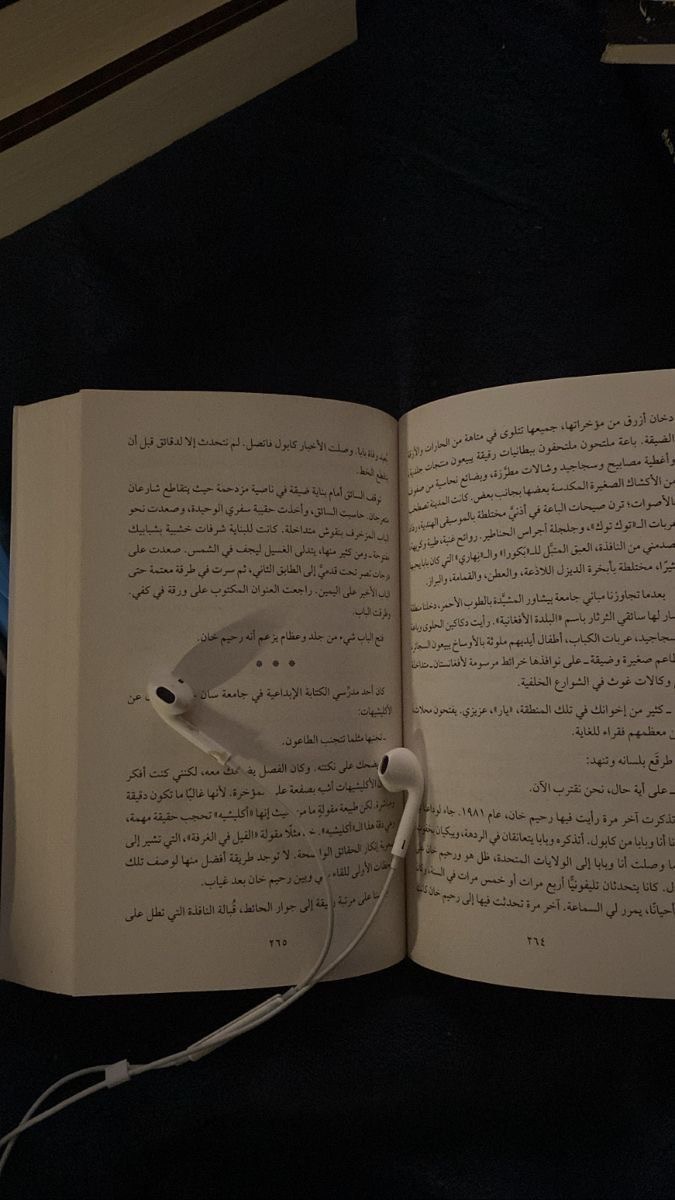 دخان أزرق من مؤخراتها، جميعها تتلوى في متاهة من الحارات والأزقة
الضيقة. باعة ملتحون ملتحفون ببطانيات رقيقة يبيعون منتجات جلدية
وأغطية مصابيح وسجاجيد وشالات مطرَّزة، وبضائع نحاسية من صفوف
من الأكشاك الصغيرة المكدسة بعضها بجانب بعض. كانت المدينة تصطخب
بالأصوات؛ ترن صيحات الباعة في أذنيَّ مختلطة بالموسيقى الهندية،
عربات الـ«توك توك»، وجلجلة أجراس الحناطير. روائح غنية، طيبة وكريهة،
صدمني من النافذة، العبق المتبَّل للـ«پكورا» والـ«نِهاري» التي كان بابا يحبها
ثيرًا، مختلطة بأبخرة الديزل اللاذعة، والعطن، والقمامة، والبراز.
بعدما تجاوزنا مباني جامعة بيشاور المشيَّدة بالطوب الأحمر، دخلنا منطقة
سار لها سائقي الثرثار باسم «البلدة الأفغانية». رأيت دكاكين الحلوى وباعة
سجاجيد، عربات الكباب، أطفال أيديهم ملوثة بالأوساخ يبيعون السجائر،
طاعم صغيرة وضيقة ـ على نوافذها خرائط مرسومة لأفغانستان ـ متداخلة
وكالات غوث في الشوارع الخلفية.
ـ كثير من إخوانك في تلك المنطقة، «يار»، عزيزي. يفتحون محلات،
ن معظمهم فقراء للغاية.
طرقَع بلسانه وتنهد:
ـ على أية حال، نحن نقترب الآن.
تذكرت آخر مرة رأيت فيها رحيم خان، عام ١٩٨١. جاء لوداعنا
نا أنا وبابا من كابول. أتذكره وبابا يتعانقان في الردهة، ويبكيان بخفوت.
ما وصلت أنا وبابا إلى الولايات المتحدة، ظل هو ورحيم خان على
ل. كانا يتحدثان تليفونيًّا أربع مرات أو خمس مرات في السنة، وكان
أحيانًا، يمرر لي السماعة. آخر مرة تحدثت فيها إلى رحيم خان كانت
٢٦٤
بُعيد وفاة بابا. وصلت الأخبار كابول فاتصل. لم نتحدث إلا لدقائق قبل أن
ينقطع الخط.
توقف السائق أمام بناية ضيقة في ناصية مزدحمة حيث يتقاطع شارعان
متعرجان. حاسبت السائق، وأخذت حقيبة سفري الوحيدة، وصعدت نحو
الباب المزخرف بنقوش متداخلة. كانت للبناية شرفات خشبية بشبابيك
مفتوحة ـ ومن كثير منها، يتدلى الغسيل ليجف في الشمس. صعدت على
درجات تصر تحت قدميَّ إلى الطابق الثاني، ثم سرت في طرقة معتمة حتى
الباب الأخير على اليمين. راجعت العنوان المكتوب على ورقة في كفي.
وطرقت الباب.
فتح الباب شيء من جلد وعظام يزعم أنه رحيم خان.
كان أحد مدرِّسي الكتابة الإبداعية في جامعة سان عن
الأكليشيهات:
ـ تجنبها مثلما تتجنب الطاعون.
يضحك على نكتته. وكان الفصل معه، لكنني كنت أفكر
الأكليشيهات أشبه بصفعة على المؤخرة. لأنها غالبًا ما تكون دقيقة
ومباشرة. لكن طبيعة مقولةٍ ما من حيث إنها «أكليشيه» تحجب حقيقة مهمة،
وهي دقة هذا الـ«أكليشيه». مثلًا مقولة «الفيل في الغرفة»، التي تشير إلى
تجربة إنكار الحقائق الواضحة. لا توجد طريقة أفضل منها لوصف تلك
اللحظات الأولى للقاء بيني وبين رحيم خان بعد غياب.
على مرتبة رقيقة إلى جوار الحائط، قُبالة النافذة التي تطل على
٢٦٥